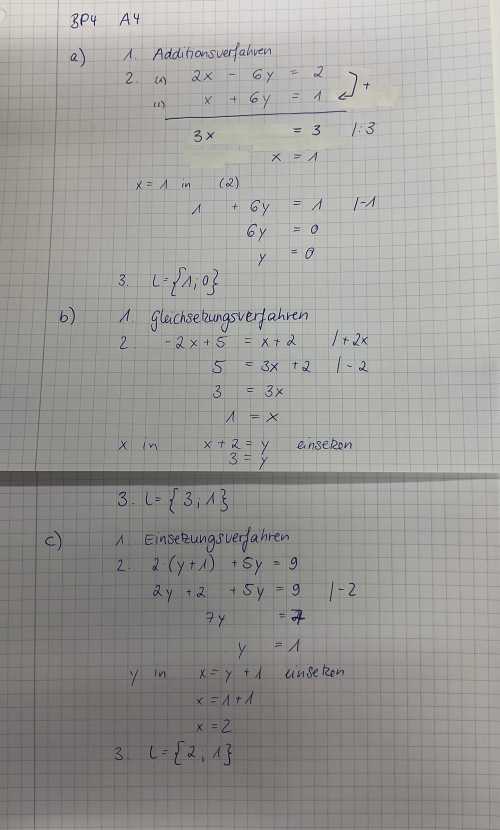 BP4 A4
a) 1. Additionsverfahren
2. (I) 2x - 6y = 2
(II) x + 6y = 1 +
3x = 3 |:3
x = 1
x = 1 in (2)
1 + 6y = 1 |-1
6y = 0
y = 0
3. L = {1;0}
b) 1. Gleichsetzungsverfahren
2. -2x + 5 = x + 2 |+2x
5 = 3x + 2 |-2
3 = 3x
1 = x
x in x + 2 = y einsetzen
3 = y
3. L = {3,1}
c) 1. Einsetzungsverfahren
2. 2·(y+1) + 5y = 9
2y + 2 + 5y = 9 |-2
7y = 7
y = 1
y in x = y + 1 einsetzen
x = 1 + 1
x = 2
3. L = {2,1}